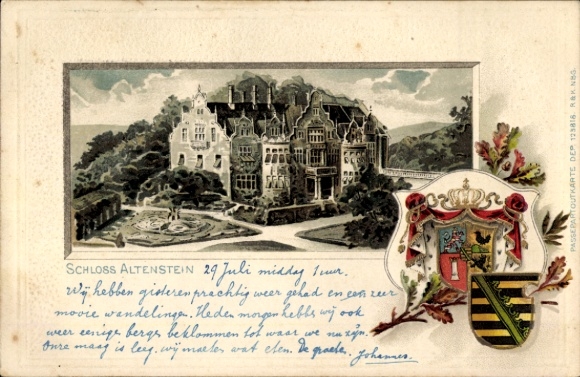 SCHLOSS ALTENSTEIN 29 Juli middag 1 uur.
Wij hebben gisteren prachtig weer gehad en een zeer
mooie wandelingen. Heden morgen hebben wij ook
weer eenige bergen beklommen tot waar we nu zijn.
Onze maag is leeg, wij moeten wat eten. De groeten. Johannes.
PASSEPARTOUTKARTE DEP. 123818. R & K. NBG.